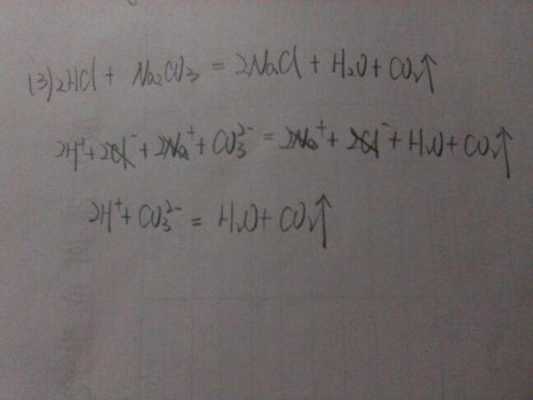 (3) 2HCl + Na₂CO₃ = 2NaCl + H₂O + CO₂↑
2H⁺ + 2Cl⁻ + 2Na⁺ + CO₃²⁻ = 2Na⁺ + 2Cl⁻ + H₂O + CO₂↑
2H⁺ + CO₃²⁻ = H₂O + CO₂↑